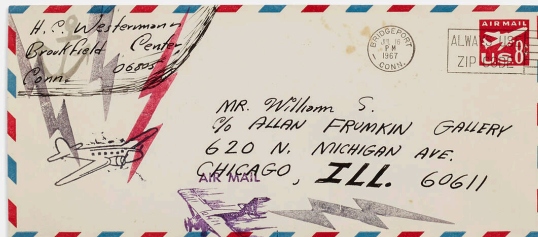 H.C. Westermann
Brookfield Center,
Conn. 06805
BRIDGEPORT
PM
1967
CONN.
ALWAYS USE
ZIP CODE
AIR MAIL
US 8¢
MR. William S.
c/o ALLAN FRUMKIN GALLERY
620 N. MICHIGAN AVE.
CHICAGO, ILL. 60611
AIR MAIL